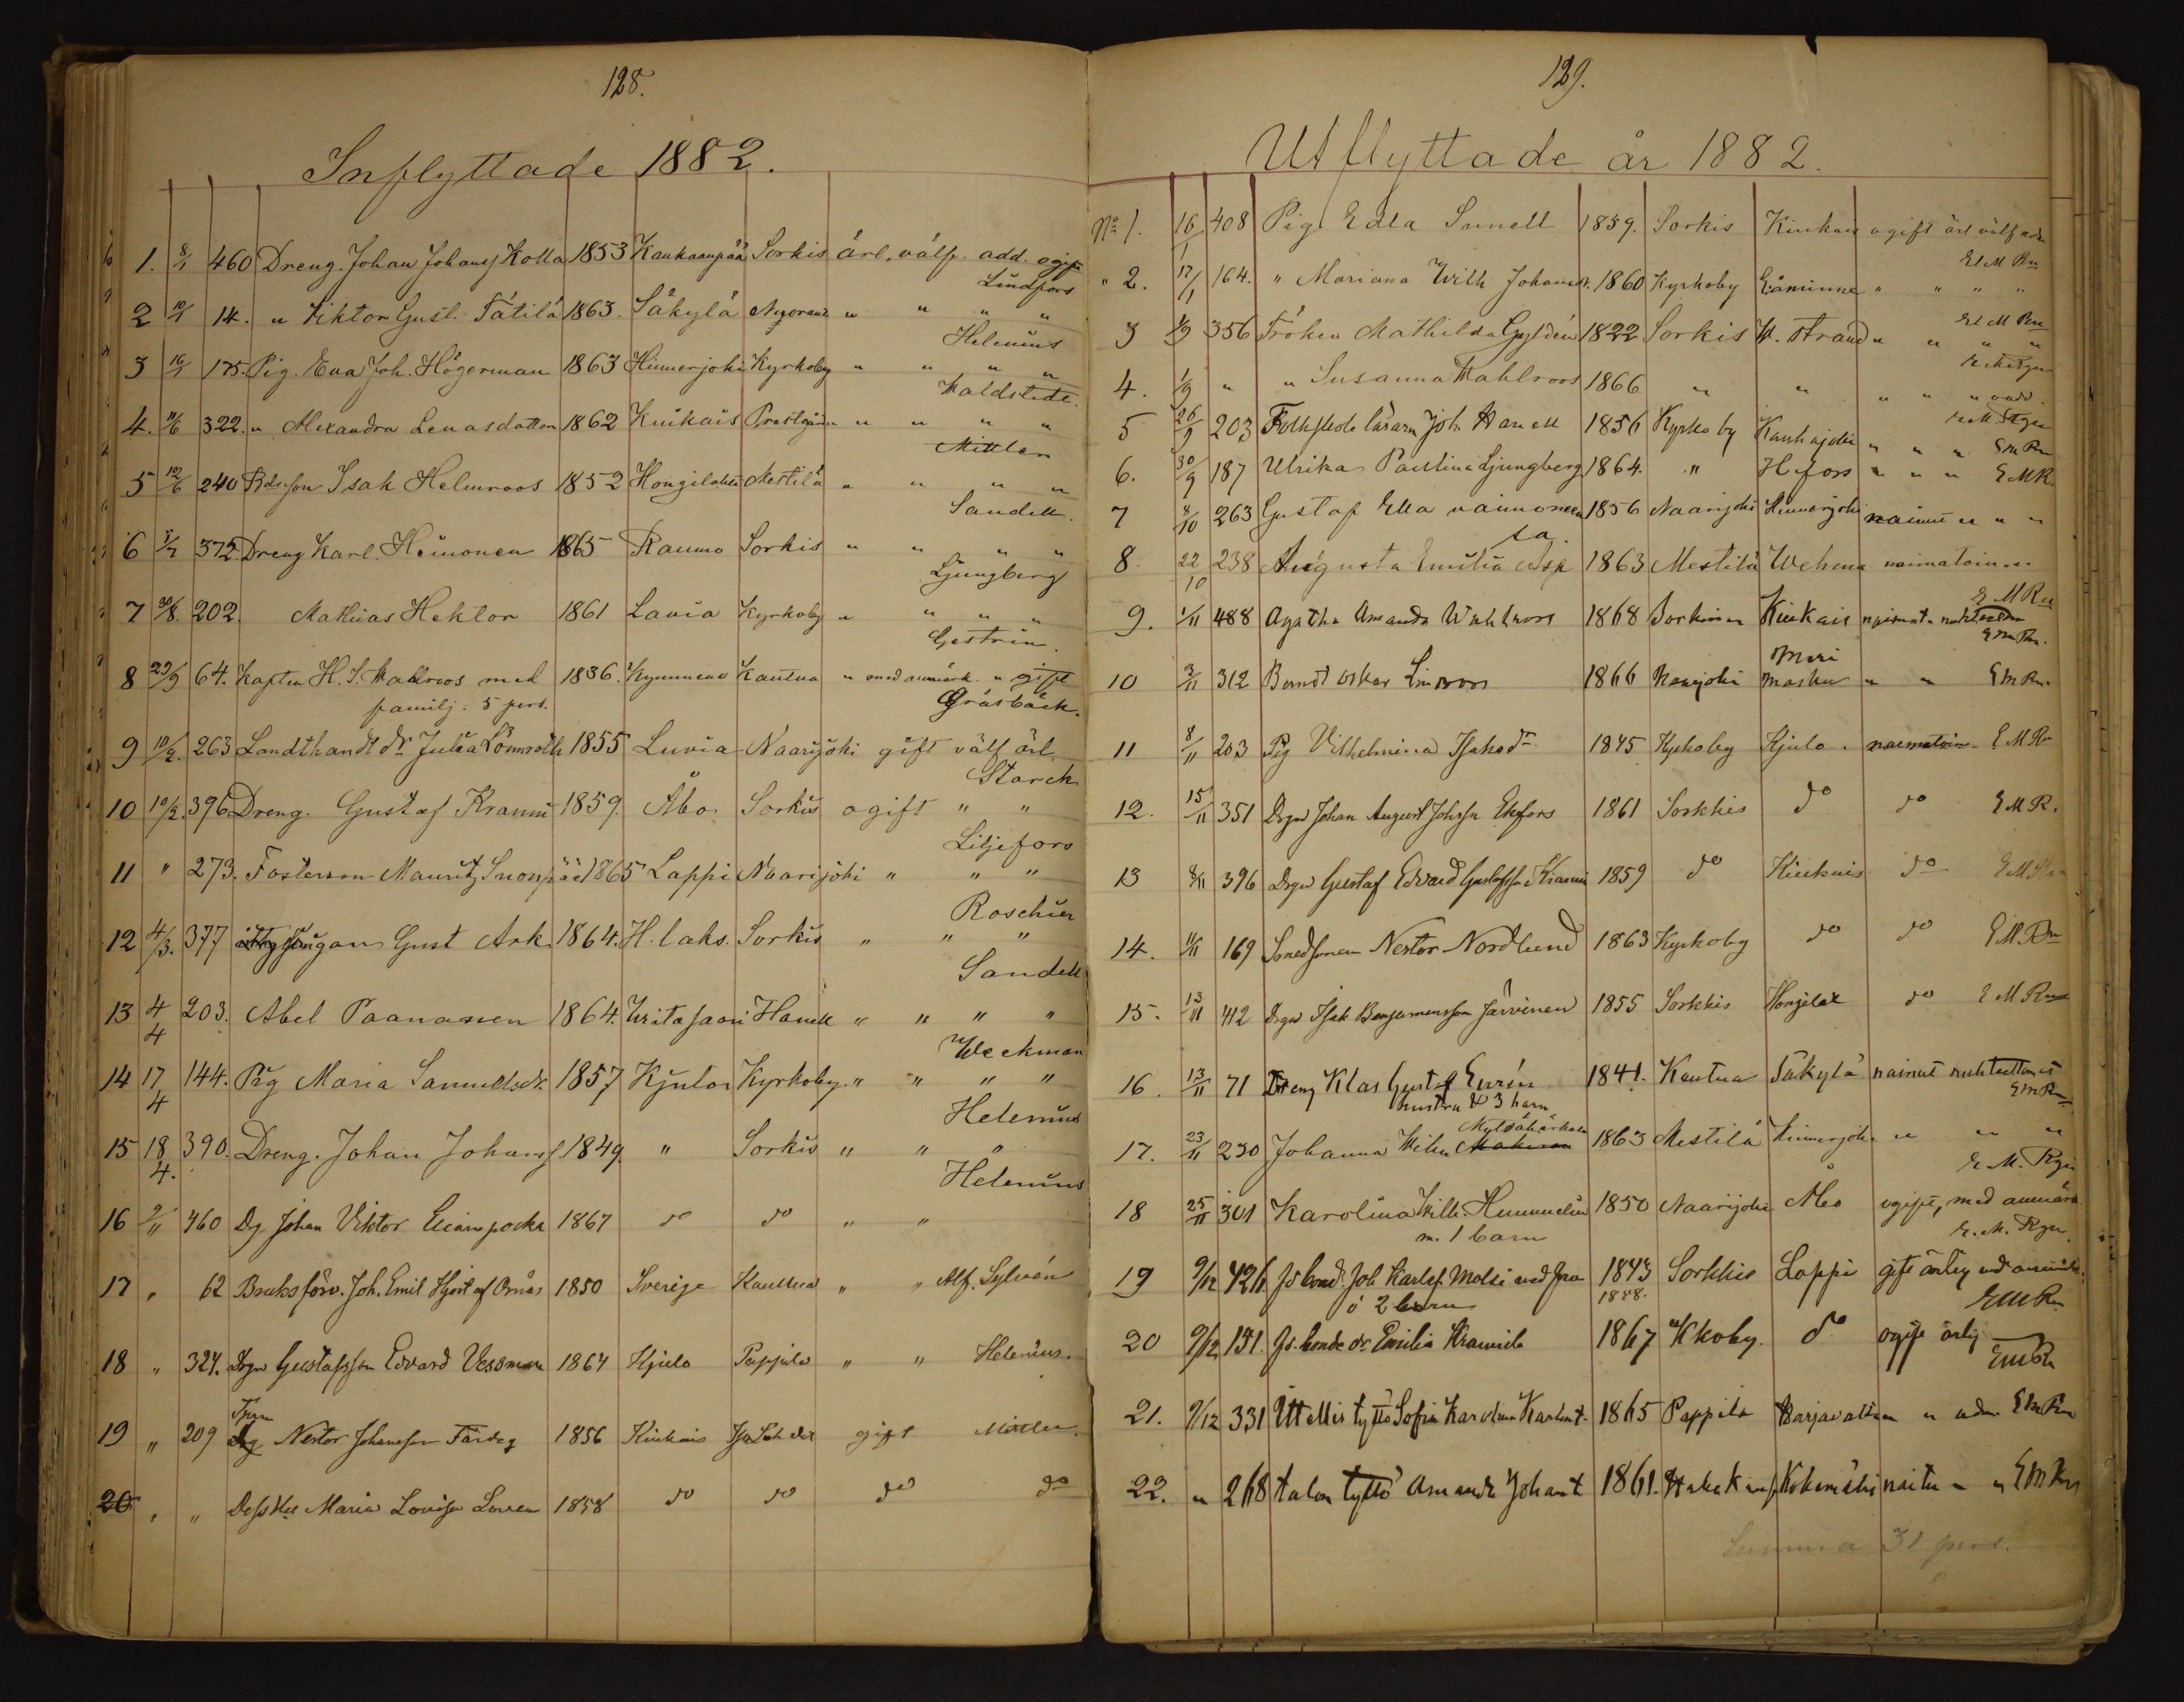 128.
Inflyttade 1882.
1. 8/1 460 Dreng. Johan Johansf Kolla 1853 Kankaanpää Sorkis ärl. välfr. add. ogift
Lindfors
2 10/1 14. " Viktor Gust. Tätilä 1863. Säkylä " " " "
Helenius
3 16/1 175. Pig. Eva Joh. Högerman 1863 Hinnerjoki Kyrkoby " " " "
Waldstedt.
4. 322. " Alexandra Lenasdotter 1862 Kiukais Prestgård " " " "
Mittler
5 12/6 240 Bdeson Isak Helmroos 1852 Hongilahti Mestilä " " " "
Sandell.
6 372 Dreng Karl Heinonen 1865 Raumo Sorkis " " " "
Ljungberg
7 30/8. 202. Mathias Hektor 1861 Lavia Kyrkoby " " " "
Gestrin.
8 29/9 64. Kapten H. J. med 1836. Kymmene Kautua " med anmärk. " gift
familj. 5 pers. Gräsbäck.
9 10/2. 263 Landthandl dr Julia Lönnroth 1855 Luvia Naarijoki gift välf ärl.
Starck
10 10/2. 396. Dreng. Gustaf Kranni 1859. Åbo. Sorkis ogift " "
Liljefors
11 " 273. Fosterson Mauritz Suonpää 1865 Lappi Naarijoki " " "
Roschier
12 4/3. 377 Gust Ark. 1864. H. laks. Sorkis " " "
Sandell
13 4/4 203. Abel Paananen 1864. Hanell " " " "
Weckman
14 17/4 144. Pig Maria Samuelsdr. 1857 Kjulo Kyrkoby " " " "
Helenius
15 18/4. 390. Dreng. Johan Johansf. 1849. " Sorkis " " "
Helenius
16 9/11 460 Dg Johan Viktor 1867 do do " "
17 " 62 Bruksförv. Joh. Emil Hjort af Ornäs 1850 Sverige Kauttua " " Alf. Sylvén
18 " 324. Drgn Gustafsson Edvard Vessman 1864 Kjulo Pappila " " Helenius.
19 " 209 Nestor Johansson Färdig 1856 Kiukais gift Mittler.
20 " " Dess Hu Maria Lovisa 1858 do do do do
129.
Utflyttade år 1882.
No 1. 16/1 408 Pig. Edla Sunell 1859. Sorkis Kiukais ogift ärl välf adm
El M Rn
" 2. 17/1 164. " Mariana Wilh Johansdr. 1860 Kyrkoby Eräminne " " " "
El M Rn
3 1/9 356 Fröken Mathilda Gyldén 1822 Sorkis N. strand " " " "
4. 1/9 " " Susanna Wahlroos 1866 " " " " " oadd.
5 26/9 203 Folkskole läraren Joh. Hanell 1856 Kyrkoby Kauhajoki " " " EM Rn
6. 30/9 187 Ulrika Paulina Ljungberg 1864. " H.fors " " " EMR.
7 8/10 263 Gustaf Ella vaimoneen 1856 Naarijoki Hinnerjoki nainu " " "
sa.
8. 22/10 238 Augusta Emilia Asp 1863 Mestilä Wehma naimatoin " "
E M Rn
9. 1/11 488 Agatha Amanda Wahlroos 1868 Sorkinen Kiukais naimat.
EM Rn.
10 3/11 312 Berndt Oskar Limroos 1866 Naarijoki Masku " " EM Rn.
11 8/11 203 Pig Vilhelmina Isaksdr 1845 Kyrkoby Kjulo. naimatoin. E M Rn
12. 15/11 351 Drgn Johan August Johsson Ekfors 1861 Sorkkis do do E M R.
13 8/11 396 Drgn Gustaf Edvard Gustafsson Kranni 1859 do Kiukais do
14. 11/11 169 Smedsonen Nestor Nordlund 1863 Kyrkoby do do E M Rn
15. 13/11 412 Drgn Isak Benjaminsson Järvinen 1855 Sorkkis Honjilax do E M Rn
16. 13/11 71 Dreng Klas Gustaf Eurén 1841. Kautua Säkylä nainut nuhteettomasti
hustru & 3 barn EM Rn
17. 23/11 230 Johanna Wilh. 1863 Mestilä Hinnerjoki " " "
E. M. Rgn
18 25/11 301 Karolina Wilh. Hummelin 1850 Naarijoki Åbo ogift, med anmärk
m. 1 barn E. M. Rgn.
19 9/12 426 Js bond. Joh Karlsf. Molsi med fru 1843 Sorkkis Lappi gift ärlig
ó 2 barn 1848. EM Rn
20 9/12 151. Js. bonde dr Emilia Kramila 1867 Kkoby. do ogift ärlig
EM Rn
21. 9/12 331 Ittellis tyttö Sofia Karolina Karlint. 1865 Pappila Harjavalta " " EM Rn
22. " 268 talon tyttö Amanda Johant 1861. Kokemäki naitu " " EM Rn
Summa 31 pers.